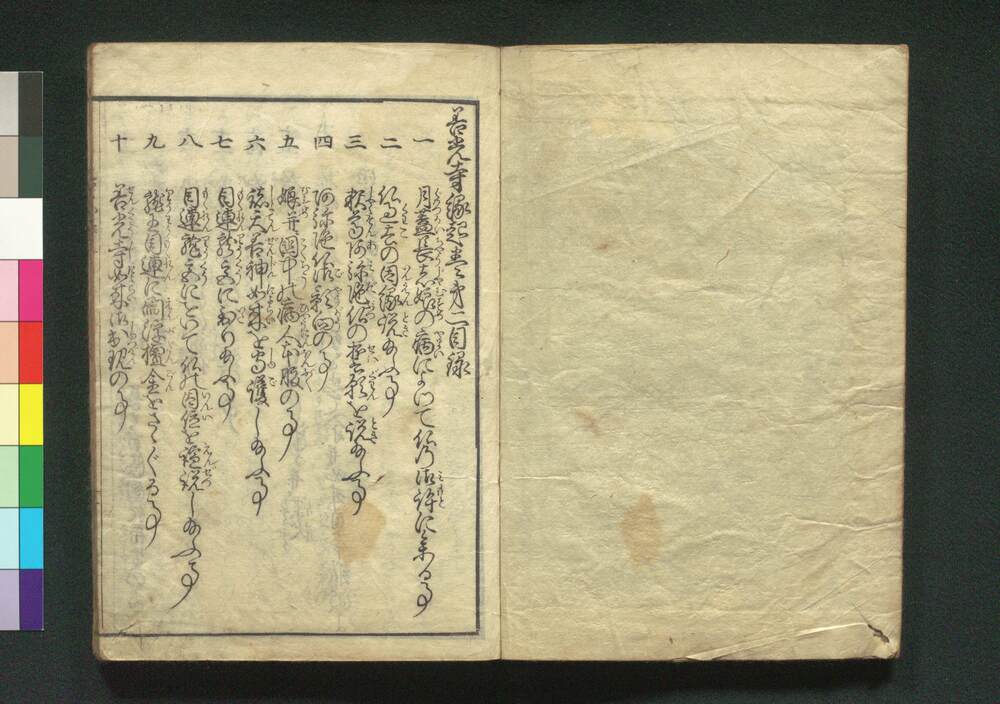 善光寺縁起巻第二目録
一 月蓋長者娘の病によりて仏の御許に参る事
二 仏過去の因縁説給ふ事
三 釈尊阿弥陀仏の本願を説給ふ事
四 阿弥陀仏影向の事
五 娘并国中の病人本服の事
六 諸天善神如来を守護し給ふ事
七 目連龍宮におもむき給ふ事
八 目連龍宮にをいて仏の因位を演説し給ふ事
九 龍王目連に閻浮檀金をさゝぐる事
十 善光寺如来御出現の事